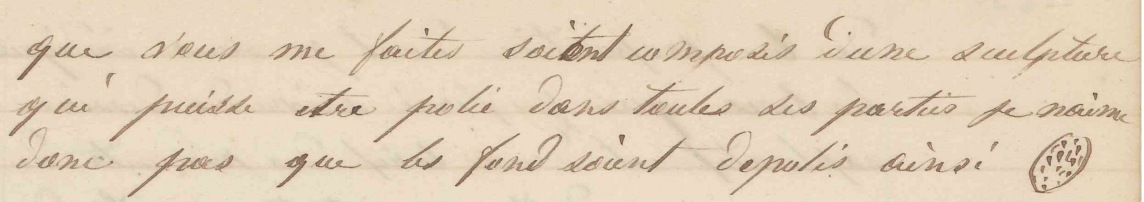 que vous me faites soient composés d'une sculpture
qui puisse etre polie dans toutes ses parties je naime
donc pas que les fond soient depolis ainsi